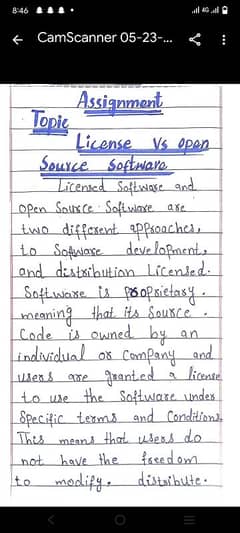 8:46
4G
CamScanner 05-23-...
Assignment
Topic
License Vs open
Source Software
Licensed Software and
open Source Software are
two different approaches,
to Software development,
and distribution Licensed.
Software is proprietary.
meaning that its Source.
Code is owned by an
individual or Company and
users are granted a license
to use the Software under
Specific terms and Conditions.
This means that users do
not have the freedom
to modify. distribute.